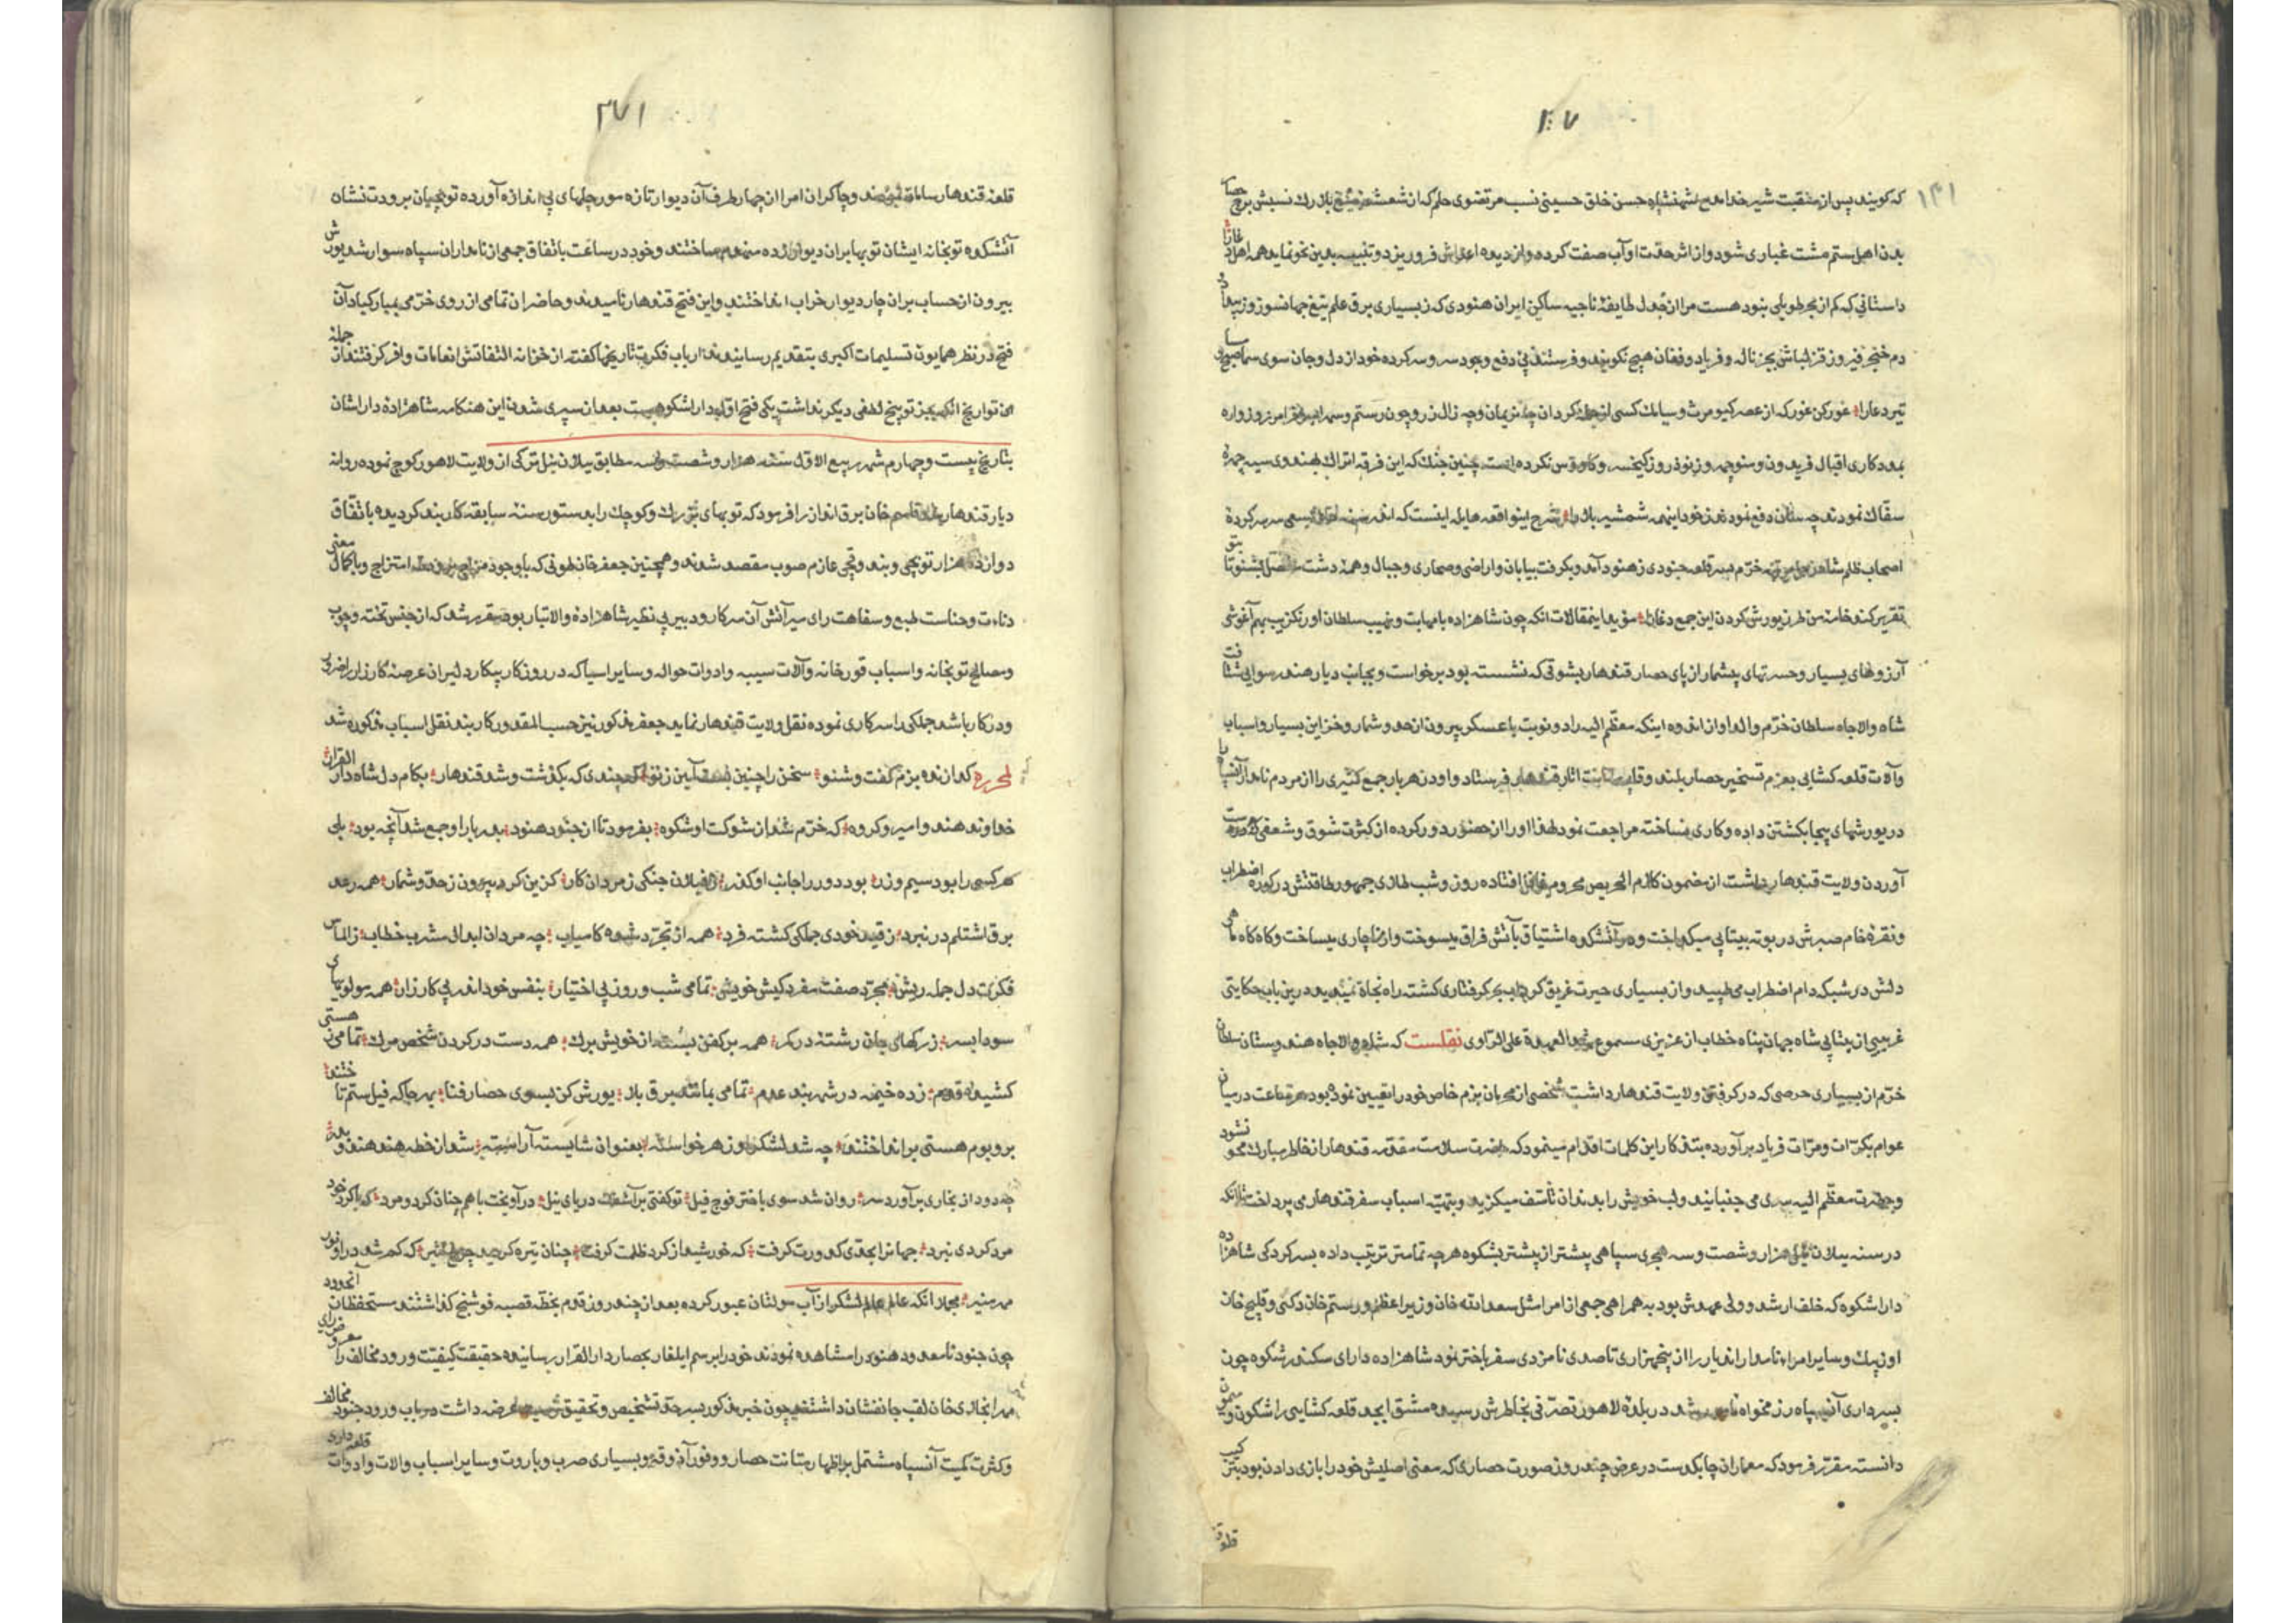 ۲۰۷
۱۴۱
که کویند پس از منقبت شیر خدا مدح شهنشاه حسن خلق حسینی نسب مرتضوی حلم که از شعشعه تیغ
بدن اهل ستم مشت غباری شود و از اثر حدت او آب صفت کرده و از دیده اعداش فرو ریزد و تنبیه بدین نحو نماید همه اهل
داستانی که کم از بحر طویلی بنود هست مرا از جدل طایفهٔ ناجیه ساکن ایران هنودی که ز بسیاری برق علم تیغ جهانسوز وز
دم خنجر فیروز قزلباش بجز ناله و فریاد و فغان هیچ نکویند و فرستند پی دفع وجود سه و سه کرده خود از دل و جان سوی
غور کن غور که از عصر کیومرث و سیامک کسی از نریمان و چه زال زر و چون رستم و سهراب و فرامرز و زواره
بمددکاری اقبال فریدون و منوچهر و ز نوذر وز کیخسرو و کاوس نکرده است چنین جنک که این فرقه اتراک بهندوی سیه چهرهٔ
سفاک نمودند چه سان دفع نمودند ز خود اینهمه شمشیر بلا را شرح اینواقعه هایله اینست که اندر
اصحاب ظلم شاه خرم سه قلعه جنودی ز هنود آمد و بکرفت بیابان و اراضی و صحاری و جبال و همه دشت مفصل بشنو تا
تقریر کند خامه من طرز یورش کردن این جمع دغا را مؤید اینمقالات انکه چون شاهزاده با مهابت و نهیب سلطان اورنکزیب بهم آغوشی
آرزوهای بسیار و حسرتهای بیشمار از پای حصار قندهار بشوقی که نشسته بود برخواست و بجانب دیار هند رسوایی شتافت
شاه والاجاه سلطان خرم والد او از اندوه اینکه معظم الیه را دو نوبت با عسکر بیرون از حد و شمار و خزاین بسیار و اسباب
و آلات قلعه کشایی بعزم تسخیر حصار بلند و قندهار فرستاد و او در هر بار جمع کثیری را از مردم نامدار
در یورشهای بیجا بکشتن داده و کاری نساخته مراجعت نمود لهذا او را از حضور دور کرده از کثرت شوق و شعفی که
آوردن ولایت قندهار داشت از مضمون کلام الحریص محروم غافل افتاده روز و شب طلای جمهور طاقتش در کوره اضطراب
و نقره خام صبرش در بوته بیتابی میکداخت و در آتشکده اشتیاق بآتش فراق میسوخت و از ناچاری میساخت و کاه کاه ماهی
دلش در شبکه دام اضطراب می طپید و از بسیاری حیرت غریق کرداب بحر کرفتاری کشته راه نجاة نمیدید درین باب حکایتی
غریبی از بیتابی شاه جهان پناه خطاب از عزیزی مسموع شد العهدة علی الراوی نقلست که شاه والاجاه هندوستان سلطان
خرم از بسیاری حرصی که در کرفتن ولایت قندهار داشت شخصی از محرمان بزم خاص خود را تعیین نموده بود هر ساعت در میان
عوام بکرات و مرات فریاد برآورده بتذکار این کلمات اقدام مینمود که حضرت سلامت مقدمه قندهار از خاطر مبارک محو نشود
و حضرت معظم الیه سری می جنبانید و لب خویش را بدندان تأسف میکزید و بتهیه اسباب سفر قندهار می پرداخت تا آنکه
در سنه ییلان ئیل هزار و شصت و سه هجری سپاهی بیشتر از پیشتر بشکوه هرچه تمامتر ترتیب داده بسرکردکی شاهزاده
دارا شکوه که خلف ارشد و ولی عهدش بود به همراهی جمعی از امرا مثل سعدالله خان وزیر اعظم و رستم خان دکنی و قلیج خان
اوزبک و سایر امراء نامدار اندیار را از پنجهزاری تا صدی نامزدی سفر باختر نمود شاهزاده دارای سکندر شکوه چون
بسرداری آن سپاه رزمخواه شد در بلده لاهور تصرفی بخاطرش رسیده مشق ابجد قلعه کشایی را شکون و میمون
دانسته مقرر فرمود که معماران چابکدست در عرض چند روز صورت حصاری که معنی اصلیش خود را بازی دادن بود بترکیب
قلعهٔ
۲۷۱
قلعهٔ قندهار ساختند و چاکران امرا از چهار طرف آن دیوار تازه مورچلهای بی اندازه آورده توپچیان برودت نشان
آتشکده توپخانه ایشان توپها بران دیوار زده منهدم ساختند و خود در ساعت باتفاق جمعی از نامداران سپاه سوار شده یورش
بیرون از حساب بران چار دیوار خراب انداختند و این فتح قندهار نامیدند و حاضران تمامی از روی خرمی بمبارکباد آن
فتح در نظر همایون تسلیمات اکبری بتقدیم رسانیدند ارباب فکرت تاریخها کفته از خزانه التفاتش انعامات وافر کرفتند از جمله
این تواریخ انکه بجز توبیخ لطفی دیکر نداشت یکی فتح اول دارا شکوهست بعد از سپری شدن این هنکامه شاهزاده داراشان
بتاریخ بیست و چهارم شهر ربیع الاول سنه هزار و شصت و سه مطابق ییلان ئیل ترکی از ولایت لاهور کوچ نموده روانه
دیار قندهار قاسم خان برق انداز را فرمود که توپهای بزرک و کوچک را بدستور سنه سابقه کاربند کردیده باتفاق
دوازده هزار توپچی و بندوقچی عازم صوب مقصد شدند و همچنین جعفر خان طوفی که باوجود امتزاج و با کمال معنی
دناءت و خساست طبع و سفاهت رای میر آتش آن سرکار و دبیر بی نظیر شاهزاده والاتبار بود مقرر شد که از جنس تخته و چوب
و مصالح توپخانه و اسباب قورخانه و آلات سیبه و ادوات حواله و سایر اسیا که در روز کار پیکار دلیران عرصه کارزار را ضروری
و درکار باشد جملکی را سرکاری نموده نقل ولایت قندهار نماید جعفر مذکور نیز حسب المقدور کاربند نقل اسباب مذکوره شد
لمحرره کدازنده بزم کفت و شنو سخن را چنین بست آیین ز نو که چندی که بکذشت و شد قندهار بکام دل شاه دار القرار
خداوند هند و امیر و کروه که خرم شد از شوکت او شکوه بفرمود تا از جنود هنود بدربار او جمع شد آنچه بود بلی
هر کسی را بود سیم و زر بود دور را جانب او کذر ز فیلان جنکی ز مردان کار کزین کرد بیرون ز حد و شمار همه رعد
برق اشتلم در نبرد ز قید خودی جملکی کشته فرد همه از تجرد شده کامیاب چه مردان ابدال مشرب خطاب ز الماس
فکرت دل جمله ریش مجرد صفت مفرد کیش خویش تمامی شب و روز بی اختیار بنفس خود اندر پی کارزار همه مولویهای
سودا بسر ز رکهای جان رشته در کمر همه بر کفن بسته از خویش برک همه دست در کردن شخص مرک تمامی ز هستی
کشیده قدم زده خیمه در شهر بند عدم تمامی بمانند برق بلا یورش کن بسوی حصار فنا بهر جا که فیل ستم تاختند
بر و بوم هستی برانداختند چه شد لشکر از هر خواسته بعنوان شایسته آراسته شد از خطه هند هندو بدر
چه دود از بخاری برآورد سر روان شد سوی باختر فوج فیل تو کفتی برآشفت دریای نیل درآویخت باهم چنان کرد و مرد
مرد کردی نبرد جهانرا بحدی کدورت کرفت که خورشید از کرد ظلمت کرفت چنان تیره کردید چرخ اثیر که کم شد درو نور
مهر منیر مجملا انکه عالم عالم لشکر از آب مولتان عبور کرده بعد از چند روز قدم بخطه قصبه فوشنج کذاشتند مستحفظان آنحدود
چون جنود نامعدود هنود را مشاهده نمودند خود را برسم ایلغار بحصار دار القرار رسانیده حقیقت کیفیت ورود مخالف را معروض رای
خان لقب جانفشان داشتند چون خبر مذکور بسرحد تشخیص و تحقیق رسید عرضه داشت در باب ورود جنود مخالف
و کثرت کمیت آنسپاه مشتمل بر اظهار متانت حصار و وفور آذوقه و بسیاری ضرب و باروت و سایر اسباب و الات و ادوات قلعه داری